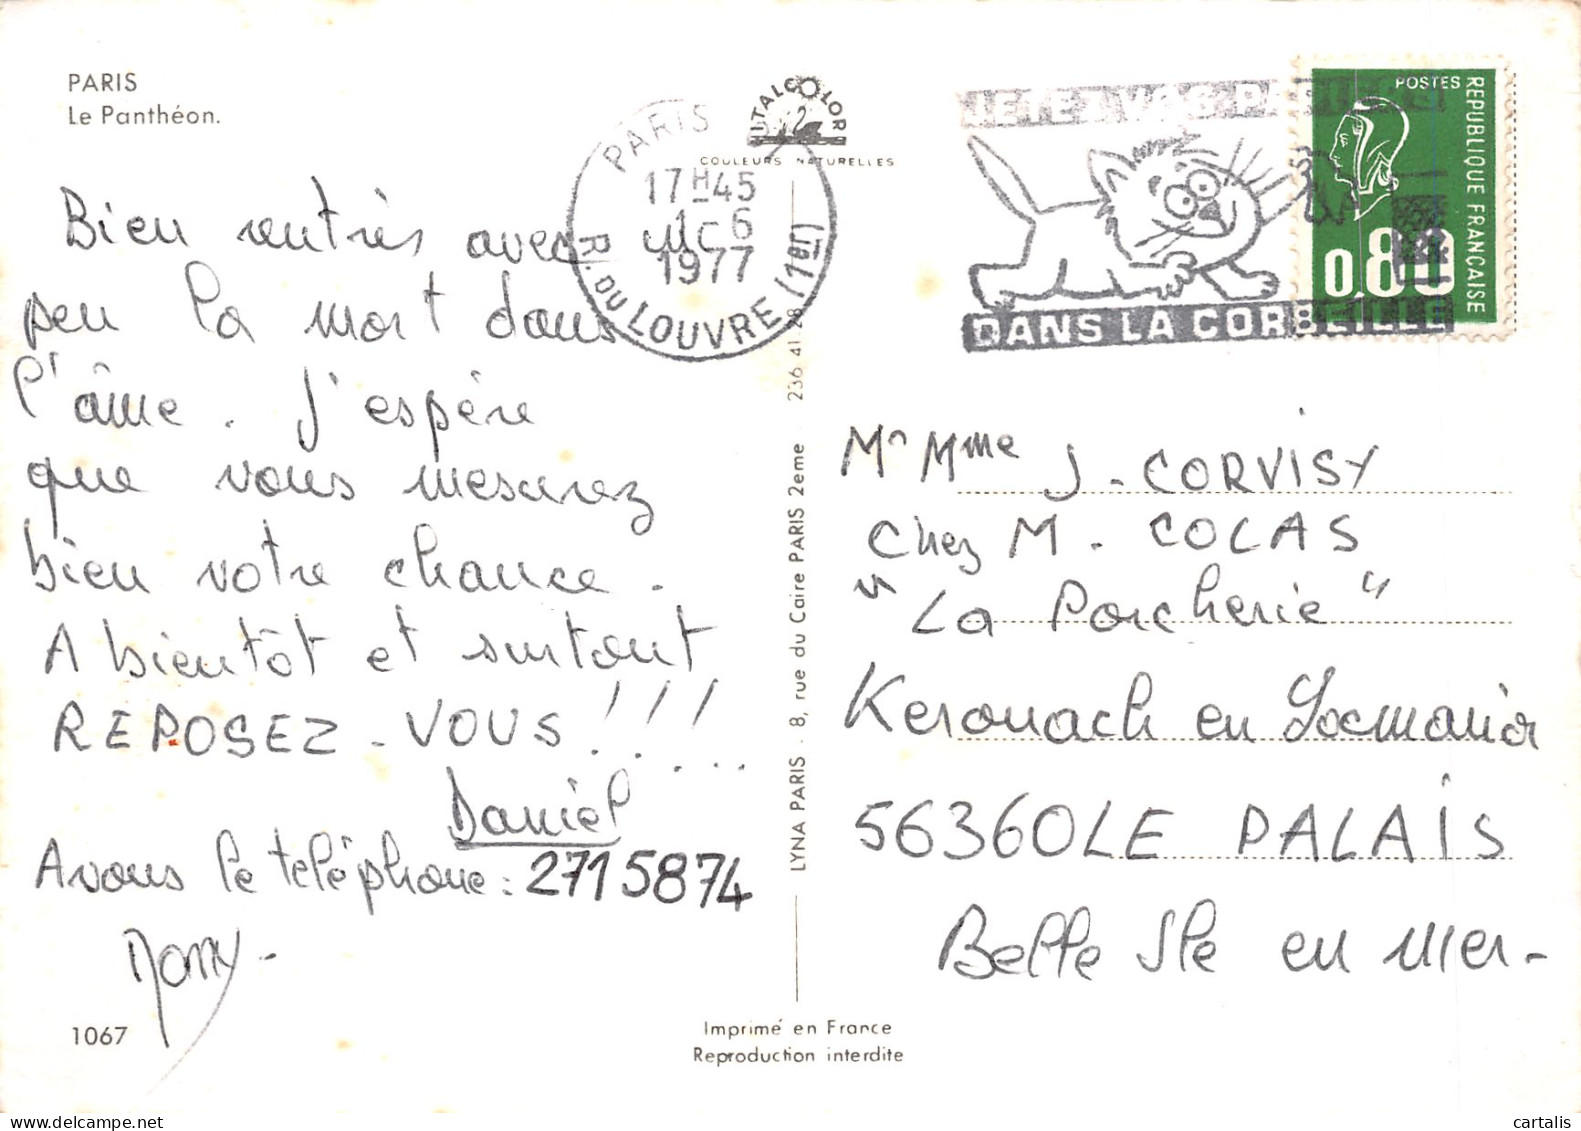 PARIS
Le Panthéon.
Bien rentrés avec
peu la mort dans
l'âme. J'espère
que vous mesurez
bien votre chance.
A bientôt et surtout
REPOSEZ-VOUS!!!...
Daniel
Avons le téléphone: 2715874
1067
ITALCOLOR
COULEURS NATURELLES
PARIS
17H45
6
1977
R. DU LOUVRE (1er)
JETEZ VOS PAPIERS
DANS LA CORBEILLE
POSTES
REPUBLIQUE FRANÇAISE
0,80
LYNA PARIS. 8, rue du Caire PARIS 2eme 236 41 28
Mr Mme J-CORVISY
Chez M. COLAS
"La Porcherie"
Kerouach en Locmaria
56360 LE PALAIS
Belle Ile en mer-
Imprimé en France
Reproduction interdite
cartalis